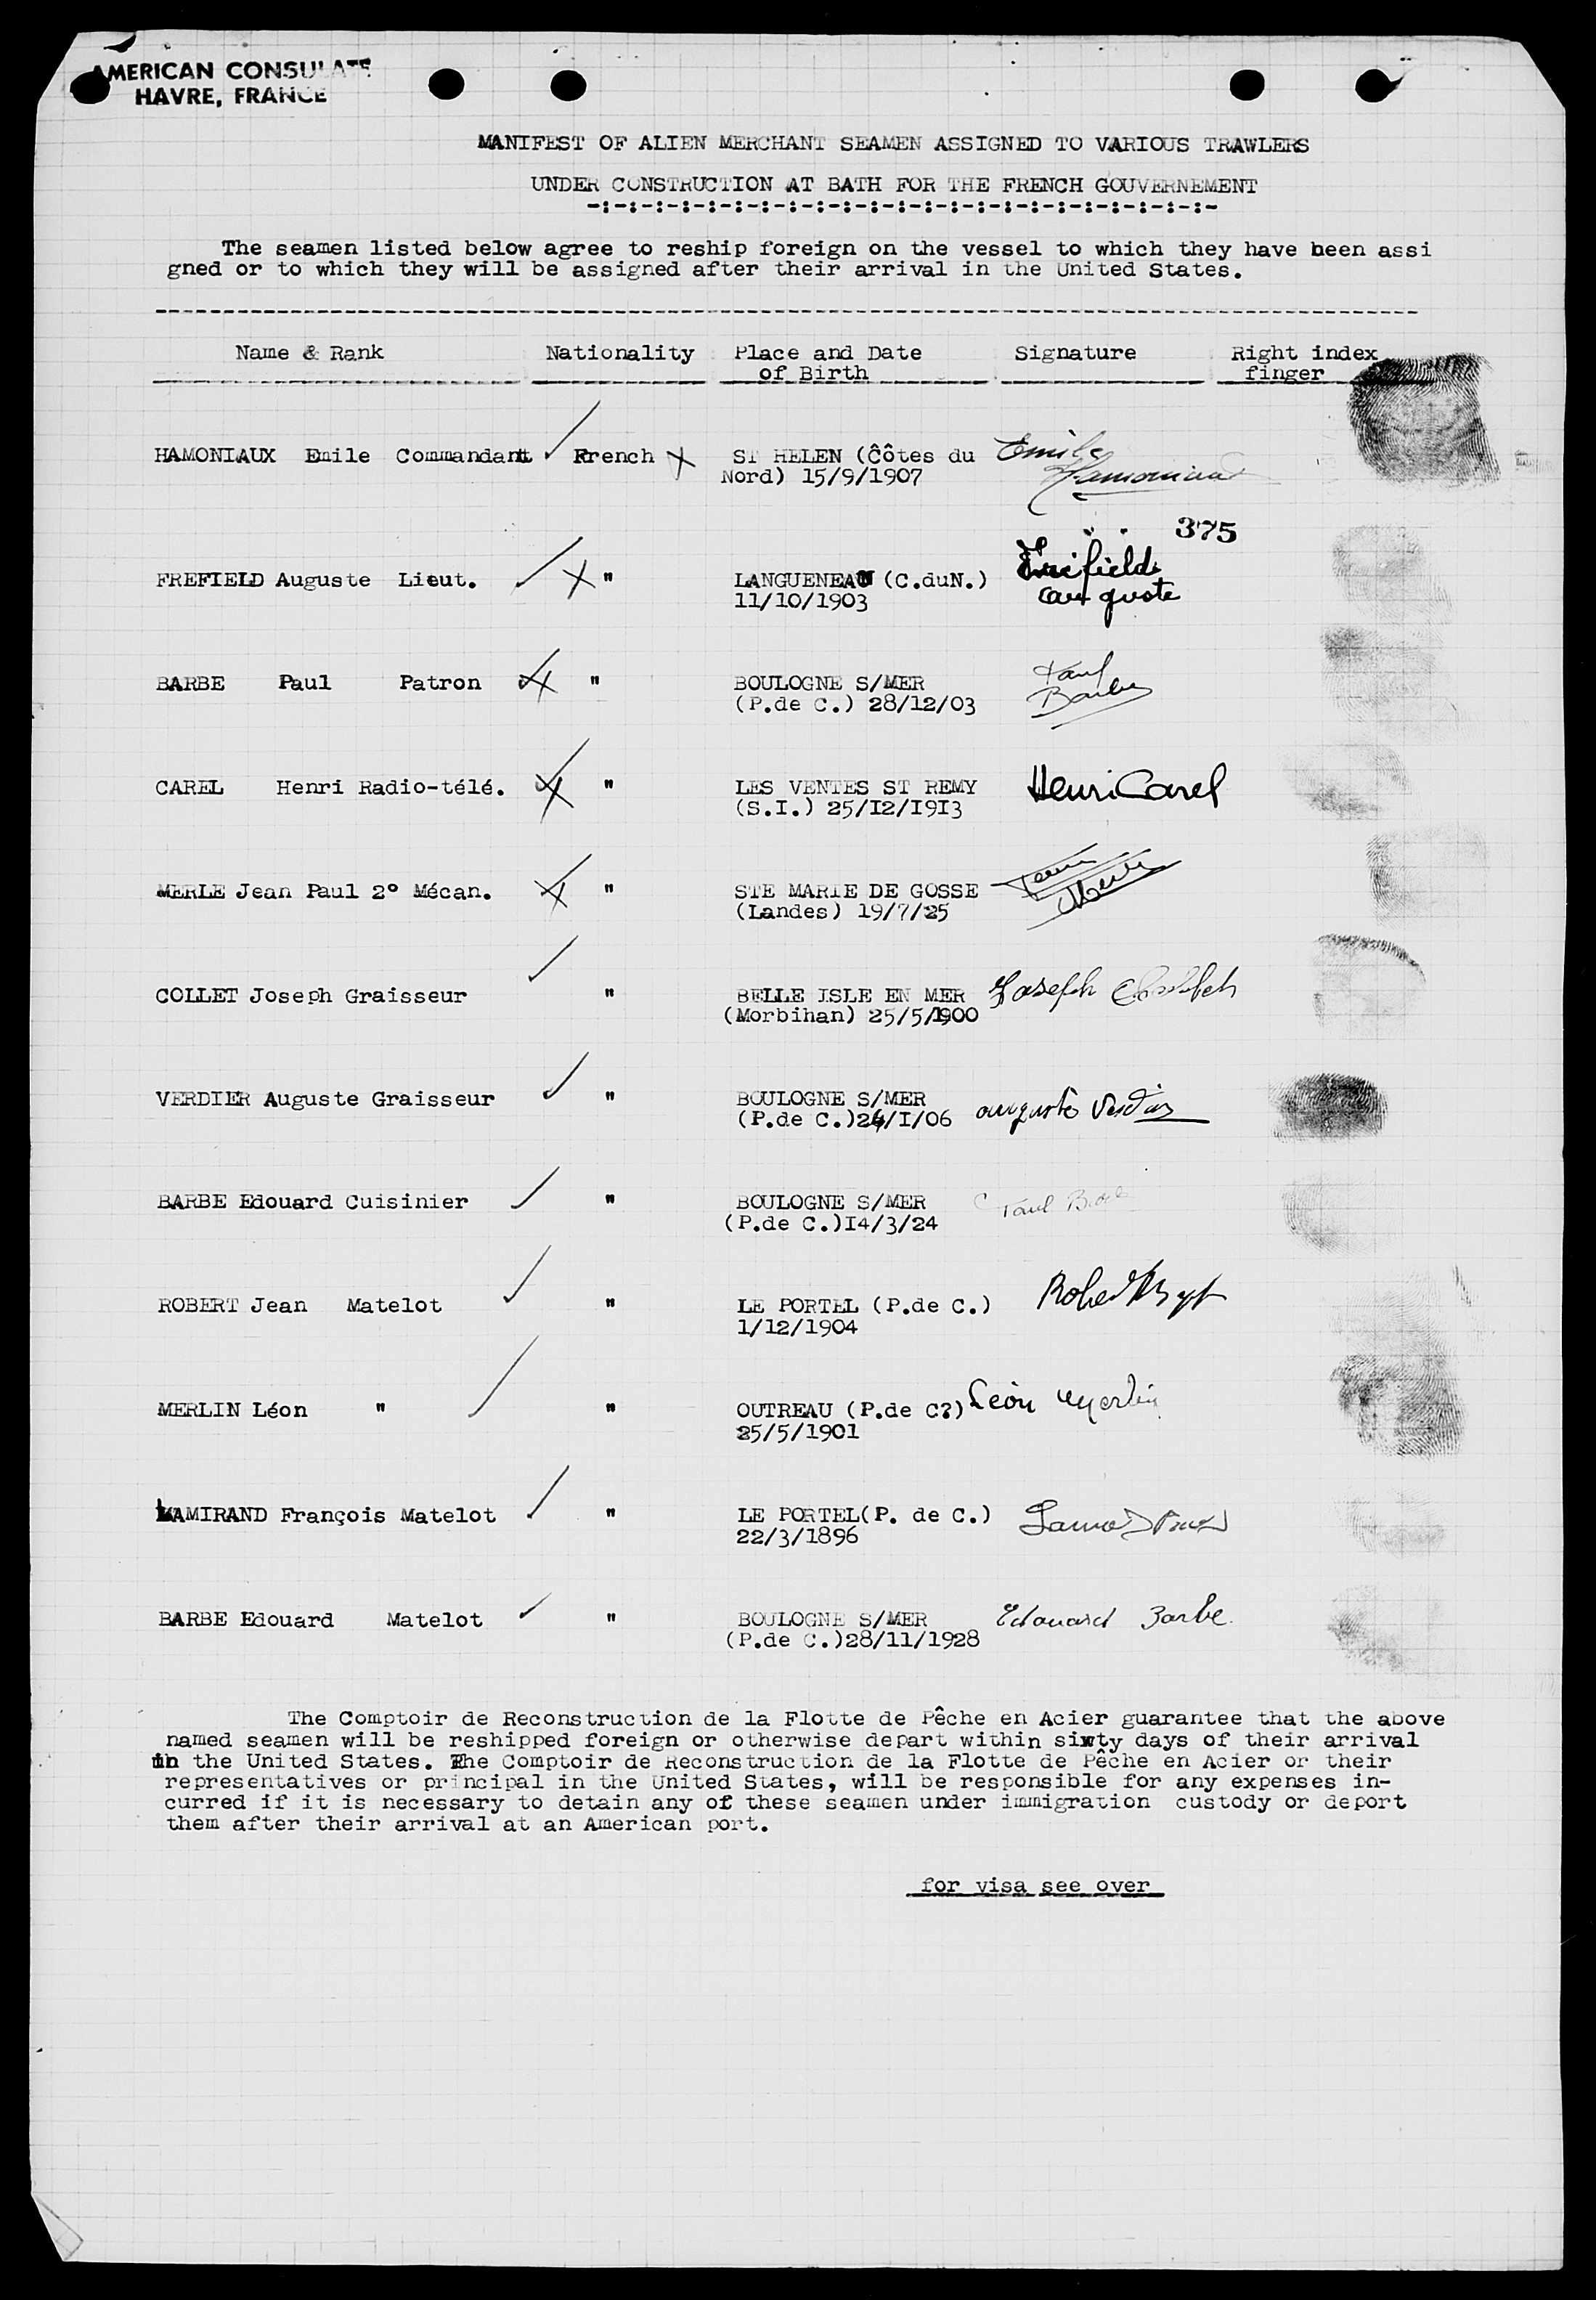 AMERICAN CONSULATE
HAVRE, FRANCE
MANIFEST OF ALIEN MERCHANT SEAMEN ASSIGNED TO VARIOUS TRAWLERS
UNDER CONSTRUCTION AT BATH FOR THE FRENCH GOUVERNEMENT
-:-:-:-:-:-:-:-:-:-:-:-:-:-:-:-:-:-:-:-:-:-:-:-
The seamen listed below agree to reship foreign on the vessel to which they have been assi
gned or to which they will be assigned after their arrival in the United States.
Name & Rank Nationality Place and Date Signature Right index
of Birth finger
HAMONIAUX Emile Commandant French ST HELEN (Côtes du Emile
Nord) 15/9/1907 Hamoniaux
375
FREFIELD Auguste Lieut. " LANGUENEAU (C.duN.) Frefield
11/10/1903 auguste
BARBE Paul Patron " BOULOGNE S/MER Paul
(P.de C.) 28/12/03 Barbe
CAREL Henri Radio-télé. " LES VENTES ST REMY Henri Carel
(S.I.) 25/I2/I9I3
MERLE Jean Paul 2° Mécan. " STE MARIE DE GOSSE Jean
(Landes) 19/7/25 Merle
COLLET Joseph Graisseur " BELLE ISLE EN MER Joseph
(Morbihan) 25/5/1900
VERDIER Auguste Graisseur " BOULOGNE S/MER
(P.de C.)24/I/06 auguste Verdier
BARBE Edouard Cuisinier " BOULOGNE S/MER Paul
(P.de C.)I4/3/24
ROBERT Jean Matelot " LE PORTEL (P.de C.) Robert
1/12/1904
MERLIN Léon " " OUTREAU (P.de C?) Léon Merlin
25/5/1901
LAMIRAND François Matelot " LE PORTEL(P. de C.)
22/3/1896
BARBE Edouard Matelot " BOULOGNE S/MER Edouard Barbe
(P.de C.)28/11/1928
The Comptoir de Reconstruction de la Flotte de Pêche en Acier guarantee that the above
named seamen will be reshipped foreign or otherwise depart within sixty days of their arrival
in the United States. The Comptoir de Reconstruction de la Flotte de Pêche en Acier or their
representatives or principal in the United States, will be responsible for any expenses in-
curred if it is necessary to detain any of these seamen under immigration custody or deport
them after their arrival at an American port.
for visa see over